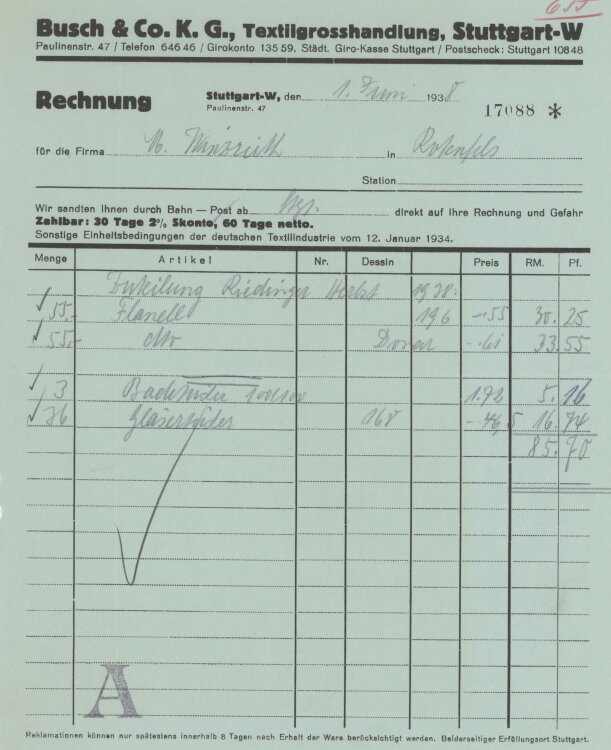 655
Busch & Co. K. G., Textilgrosshandlung, Stuttgart-W
Paulinenstr. 47 / Telefon 646 46 / Girokonto 135 59, Städt. Giro-Kasse Stuttgart / Postscheck: Stuttgart 108 48
Rechnung
Stuttgart-W, den 1. Juni 1938
Paulinenstr. 47
17088 *
für die Firma M. in Rotenfels
Station
Wir sandten Ihnen durch Bahn — Post ab direkt auf Ihre Rechnung und Gefahr
Zahlbar: 30 Tage 2% Skonto, 60 Tage netto.
Sonstige Einheitsbedingungen der deutschen Textilindustrie vom 12. Januar 1934.
Menge Artikel Nr. Dessin Preis RM. Pf.
Zuteilung Riedinger Herbst 1938.
55.- Flanell 196 -.55 30.25
55.- dto -.61 33.55
3 Badetücher 100/100 1.72 5.16
36 Gläsertücher 168 -.46,5 16.74
85.70
A
Reklamationen können nur spätestens innerhalb 8 Tagen nach Erhalt der Ware berücksichtigt werden. Beiderseitiger Erfüllungsort Stuttgart.